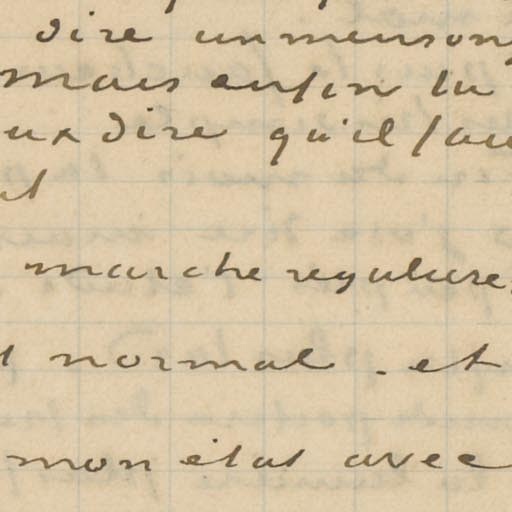 dire un mensong
mais enfin tu
eux dire qu'il fau
marche reguliere
normal. et
mon état avec